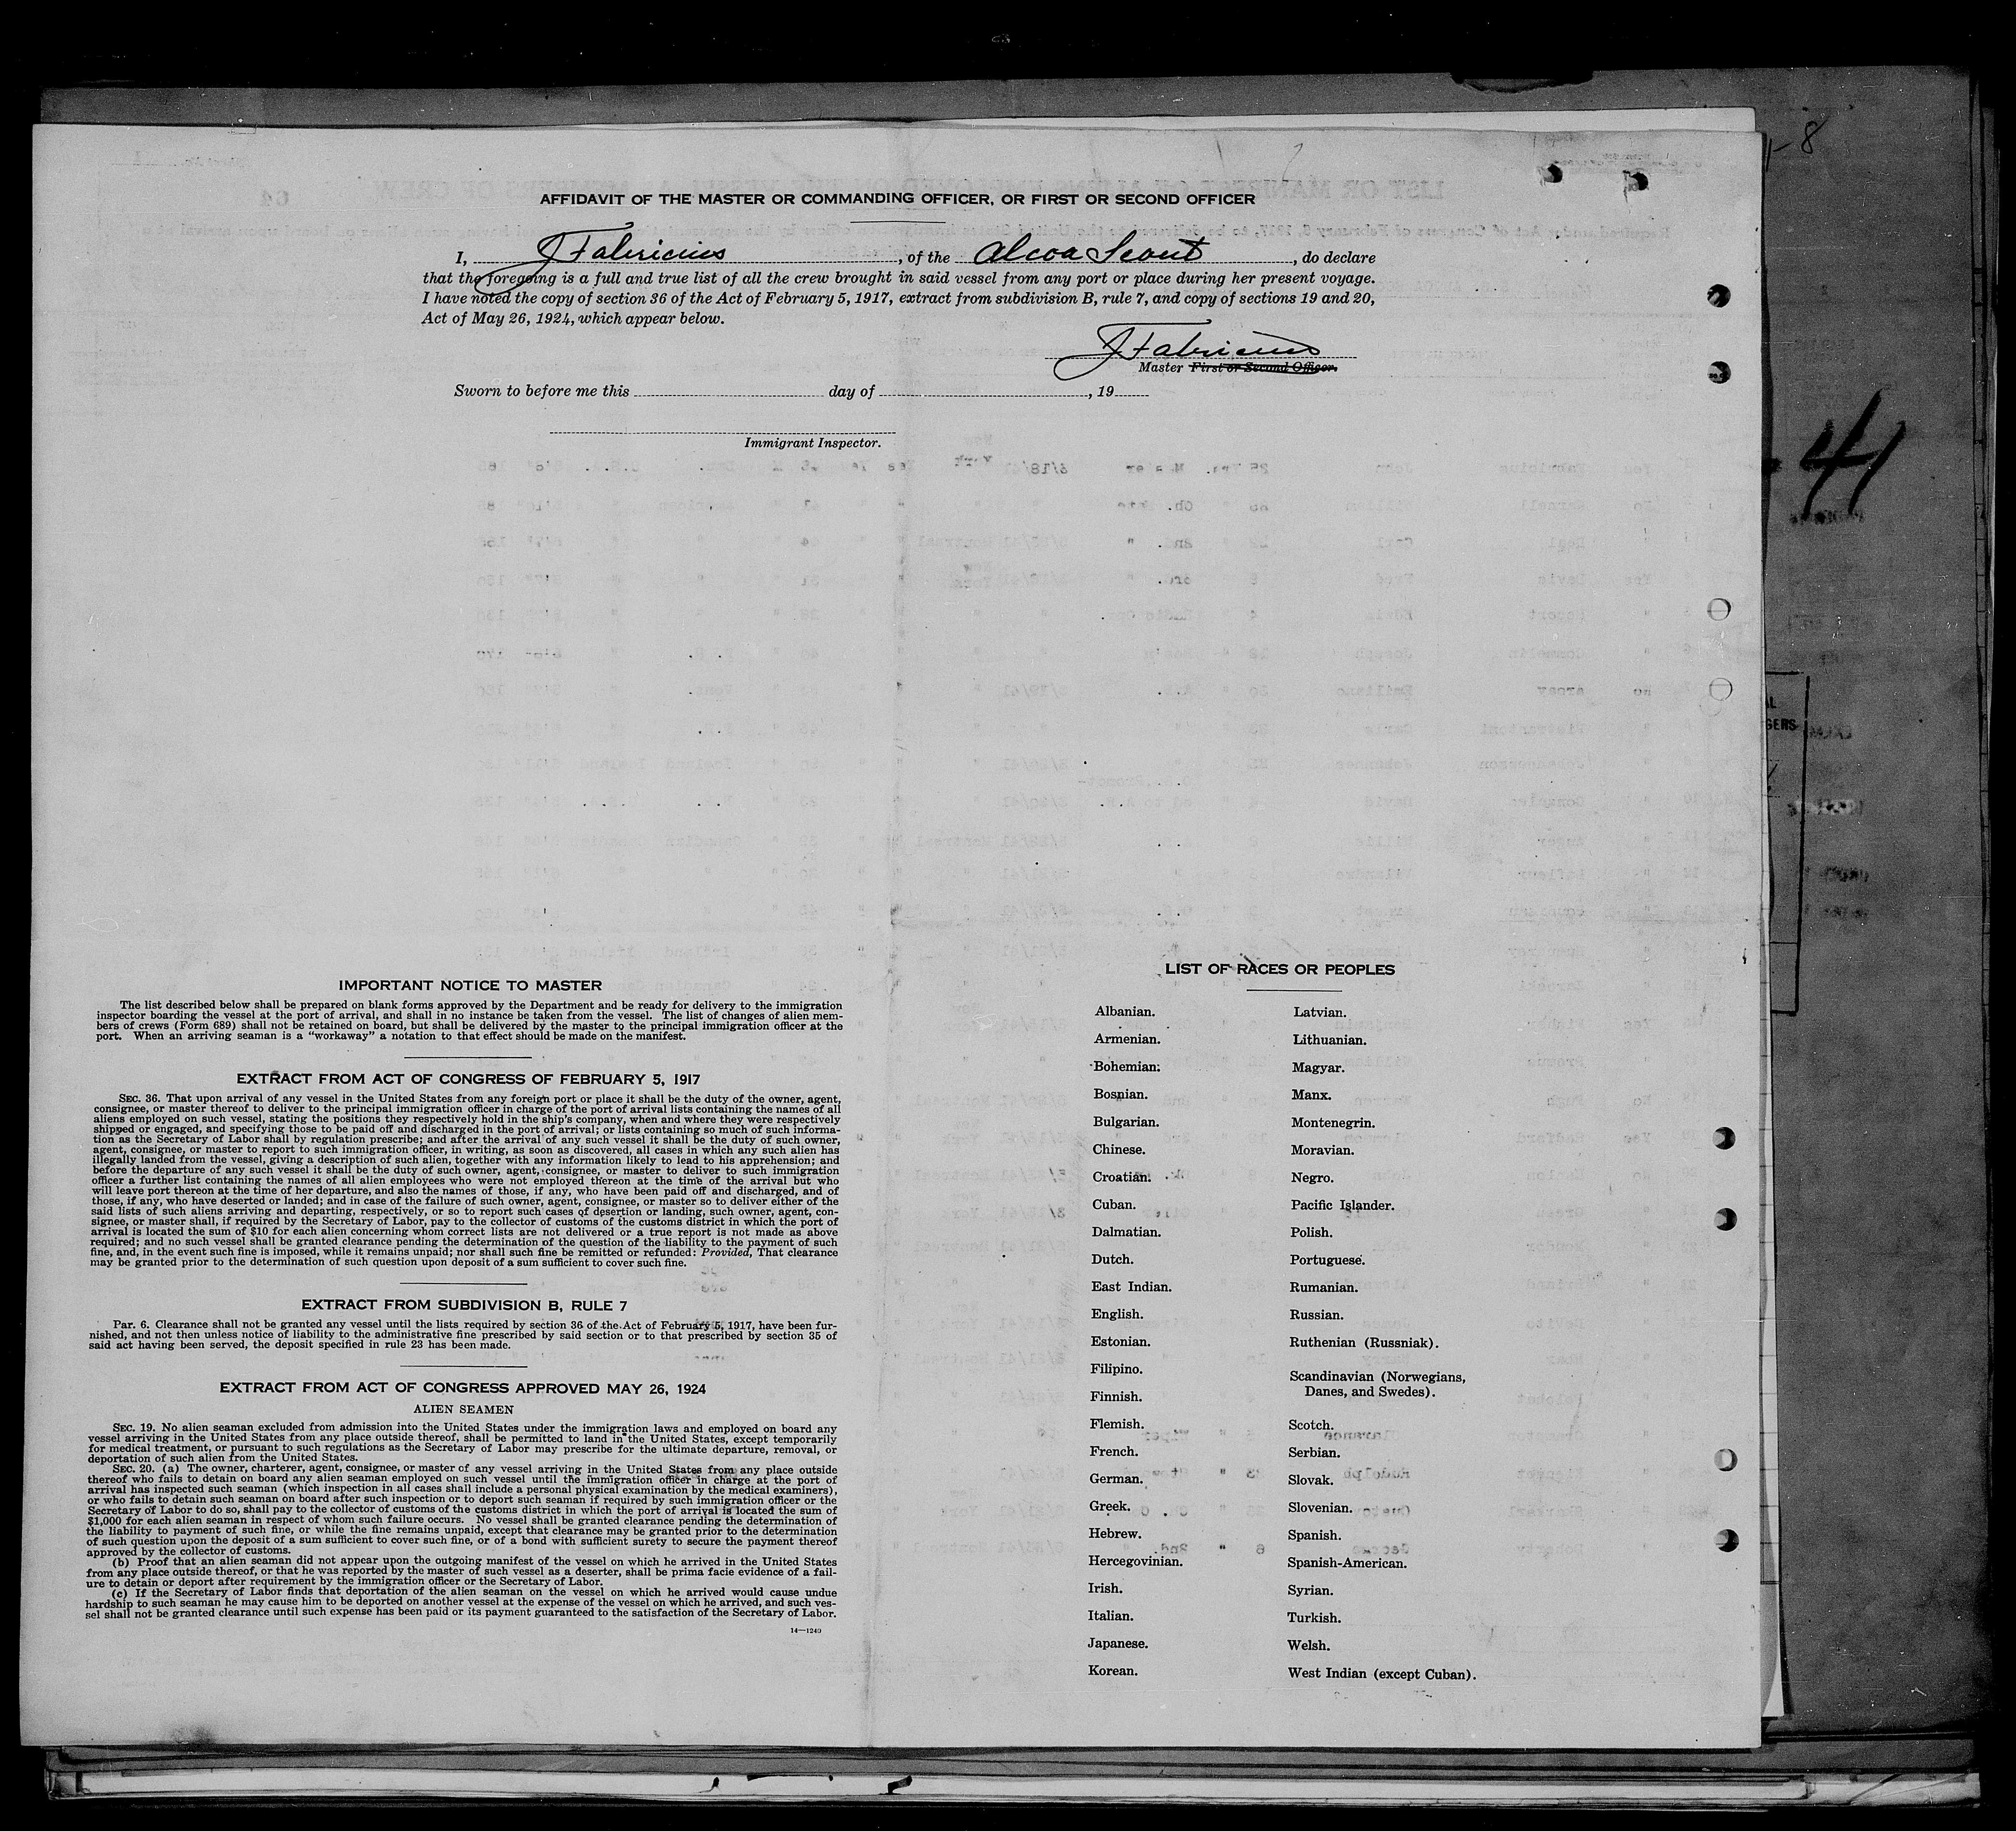 AFFIDAVIT OF THE MASTER OR COMMANDING OFFICER, OR FIRST OR SECOND OFFICER
I, J Fabricius, of the Alcoa Scout, do declare
that the foregoing is a full and true list of all the crew brought in said vessel from any port or place during her present voyage.
I have noted the copy of section 36 of the Act of February 5, 1917, extract from subdivision B, rule 7, and copy of sections 19 and 20,
Act of May 26, 1924, which appear below.
J Fabricius
Master First or Second Officer.
Sworn to before me this day of , 19
Immigrant Inspector.
IMPORTANT NOTICE TO MASTER
The list described below shall be prepared on blank forms approved by the Department and be ready for delivery to the immigration
inspector boarding the vessel at the port of arrival, and shall in no instance be taken from the vessel. The list of changes of alien mem-
bers of crews (Form 689) shall not be retained on board, but shall be delivered by the master to the principal immigration officer at the
port. When an arriving seaman is a "workaway" a notation to that effect should be made on the manifest.
EXTRACT FROM ACT OF CONGRESS OF FEBRUARY 5, 1917
SEC. 36. That upon arrival of any vessel in the United States from any foreign port or place it shall be the duty of the owner, agent,
consignee, or master thereof to deliver to the principal immigration officer in charge of the port of arrival lists containing the names of all
aliens employed on such vessel, stating the positions they respectively hold in the ship's company, when and where they were respectively
shipped or engaged, and specifying those to be paid off and discharged in the port of arrival; or lists containing so much of such informa-
tion as the Secretary of Labor shall by regulation prescribe; and after the arrival of any such vessel it shall be the duty of such owner,
agent, consignee, or master to report to such immigration officer, in writing, as soon as discovered, all cases in which any such alien has
illegally landed from the vessel, giving a description of such alien, together with any information likely to lead to his apprehension; and
before the departure of any such vessel it shall be the duty of such owner, agent, consignee, or master to deliver to such immigration
officer a further list containing the names of all alien employees who were not employed thereon at the time of the arrival but who
will leave port thereon at the time of her departure, and also the names of those, if any, who have been paid off and discharged, and of
those, if any, who have deserted or landed; and in case of the failure of such owner, agent, consignee, or master so to deliver either of the
said lists of such aliens arriving and departing, respectively, or so to report such cases of desertion or landing, such owner, agent, con-
signee, or master shall, if required by the Secretary of Labor, pay to the collector of customs of the customs district in which the port of
arrival is located the sum of $10 for each alien concerning whom correct lists are not delivered or a true report is not made as above
required; and no such vessel shall be granted clearance pending the determination of the question of the liability to the payment of such
fine, and, in the event such fine is imposed, while it remains unpaid; nor shall such fine be remitted or refunded: Provided, That clearance
may be granted prior to the determination of such question upon deposit of a sum sufficient to cover such fine.
EXTRACT FROM SUBDIVISION B, RULE 7
Par. 6. Clearance shall not be granted any vessel until the lists required by section 36 of the Act of February 5, 1917, have been fur-
nished, and not then unless notice of liability to the administrative fine prescribed by said section or to that prescribed by section 35 of
said act having been served, the deposit specified in rule 23 has been made.
EXTRACT FROM ACT OF CONGRESS APPROVED MAY 26, 1924
ALIEN SEAMEN
SEC. 19. No alien seaman excluded from admission into the United States under the immigration laws and employed on board any
vessel arriving in the United States from any place outside thereof, shall be permitted to land in the United States, except temporarily
for medical treatment, or pursuant to such regulations as the Secretary of Labor may prescribe for the ultimate departure, removal, or
deportation of such alien from the United States.
SEC. 20. (a) The owner, charterer, agent, consignee, or master of any vessel arriving in the United States from any place outside
thereof who fails to detain on board any alien seaman employed on such vessel until the immigration officer in charge at the port of
arrival has inspected such seaman (which inspection in all cases shall include a personal physical examination by the medical examiners),
or who fails to detain such seaman on board after such inspection or to deport such seaman if required by such immigration officer or the
Secretary of Labor to do so, shall pay to the collector of customs of the customs district in which the port of arrival is located the sum of
$1,000 for each alien seaman in respect of whom such failure occurs. No vessel shall be granted clearance pending the determination of
the liability to payment of such fine, or while the fine remains unpaid, except that clearance may be granted prior to the determination
of such question upon the deposit of a sum sufficient to cover such fine, or of a bond with sufficient surety to secure the payment thereof
approved by the collector of customs.
(b) Proof that an alien seaman did not appear upon the outgoing manifest of the vessel on which he arrived in the United States
from any place outside thereof, or that he was reported by the master of such vessel as a deserter, shall be prima facie evidence of a fail-
ure to detain or deport after requirement by the immigration officer or the Secretary of Labor.
(c) If the Secretary of Labor finds that deportation of the alien seaman on the vessel on which he arrived would cause undue
hardship to such seaman he may cause him to be deported on another vessel at the expense of the vessel on which he arrived, and such ves-
sel shall not be granted clearance until such expense has been paid or its payment guaranteed to the satisfaction of the Secretary of Labor.
14—1240
LIST OF RACES OR PEOPLES
Albanian.
Armenian.
Bohemian.
Bosnian.
Bulgarian.
Chinese.
Croatian.
Cuban.
Dalmatian.
Dutch.
East Indian.
English.
Estonian.
Filipino.
Finnish.
Flemish.
French.
German.
Greek.
Hebrew.
Hercegovinian.
Irish.
Italian.
Japanese.
Korean.
Latvian.
Lithuanian.
Magyar.
Manx.
Montenegrin.
Moravian.
Negro.
Pacific Islander.
Polish.
Portuguese.
Rumanian.
Russian.
Ruthenian (Russniak).
Scandinavian (Norwegians,
Danes, and Swedes).
Scotch.
Serbian.
Slovak.
Slovenian.
Spanish.
Spanish-American.
Syrian.
Turkish.
Welsh.
West Indian (except Cuban).
-8
41